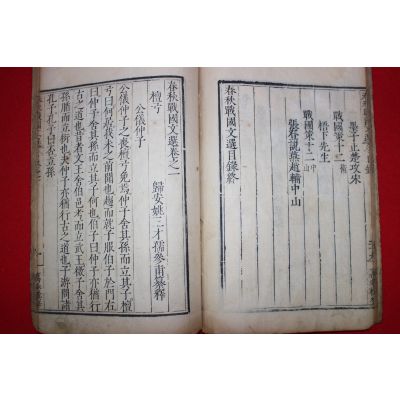 墨子止楚攻宋
戰國策十二
梧下先生
戰國策十二中
張登說燕趙輔中山
春秋戰國文選目錄終
春秋戰國文選卷之一
歸安姚三才儒參甫纂釋
檀弓
公儀仲子
公儀仲子之喪檀弓免焉仲子舍其孫而立其子檀
弓曰何居我未之前聞也趨而就子服伯子於門右
曰仲子舍其孫而立其子何也伯子曰仲子亦猶行
古之道也昔者文王舍伯邑考而立武王微子舍其
孫腯而立衍也夫仲子亦猶行古之道也子游問諸
孔子孔子曰否立孫